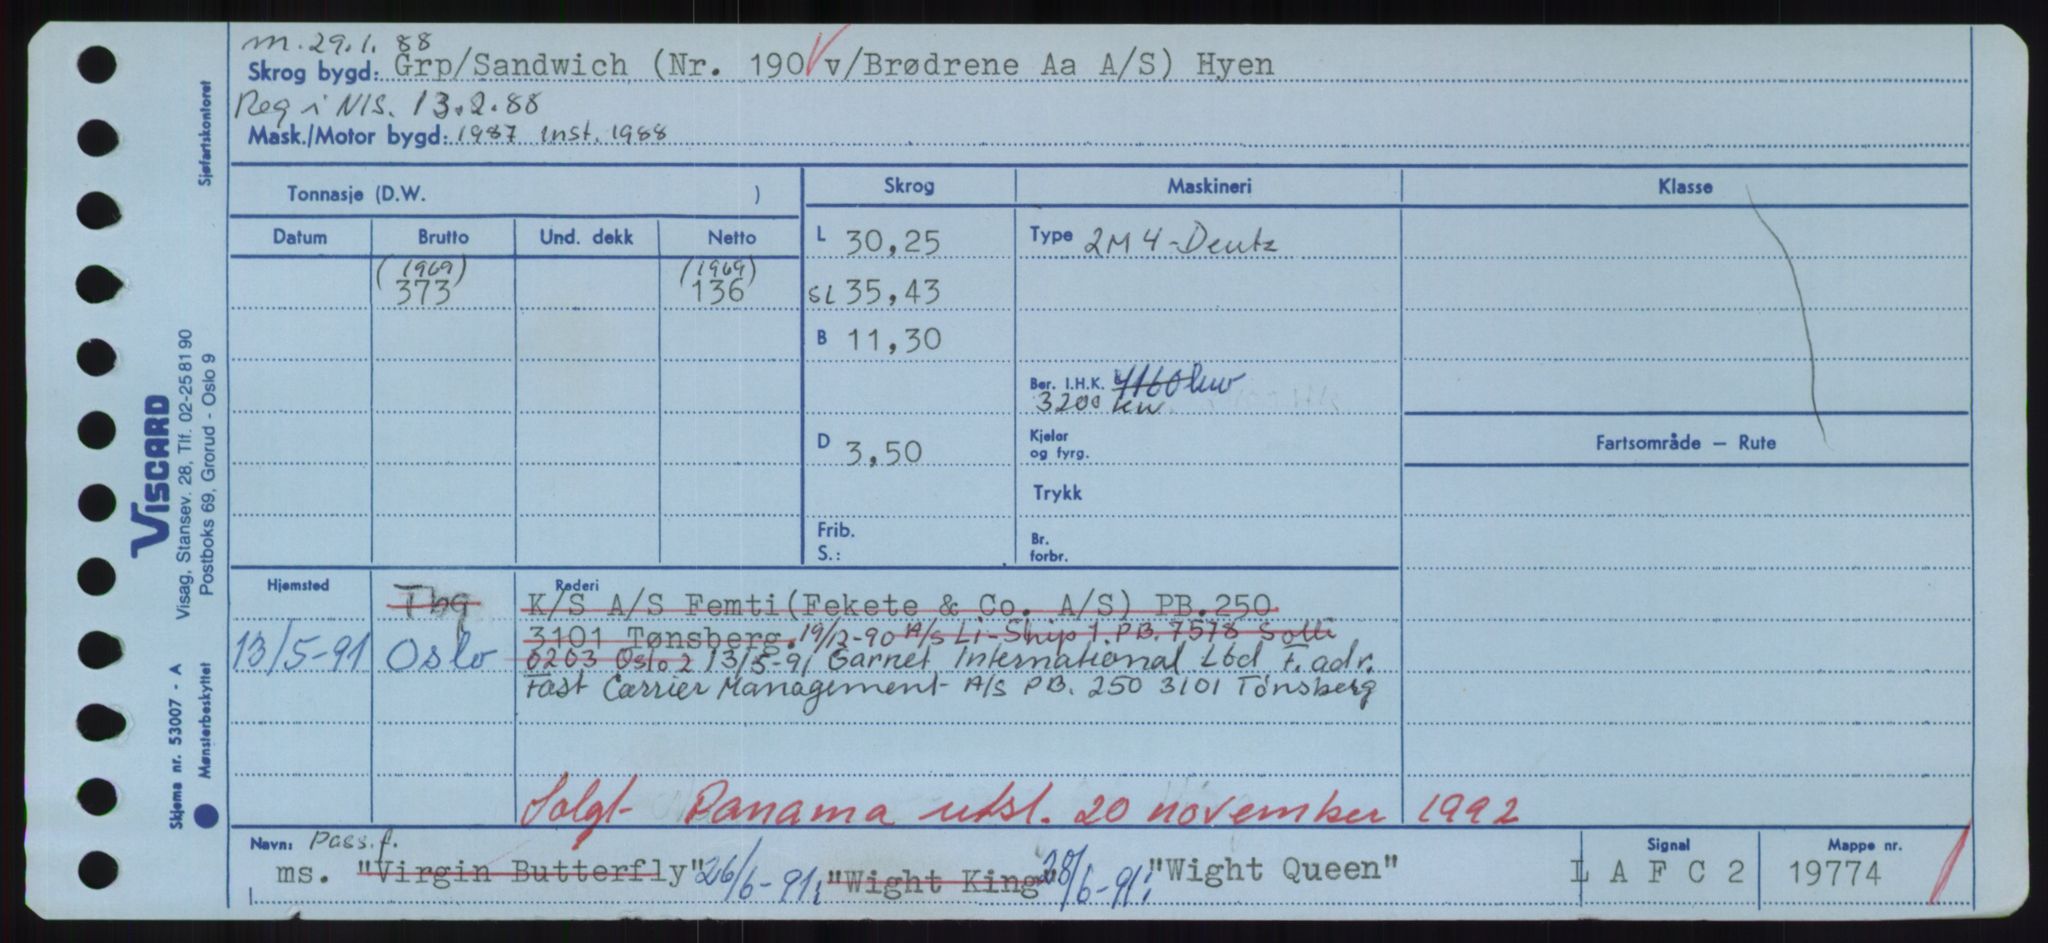 m. 29.1. 88
Skrog bygd: Grp/Sandwich (Nr. 190 v/Brødrene Aa A/S) Hyen
Reg i NIS. 13.2.88
Mask./Motor bygd: 1987 inst. 1988
Tonnasje (D.W. )
Skrog
Maskineri
Klasse
Datum
Brutto
Und. dekk
Netto
(1969) 373
(1969) 136
L 30,25
SL 35,43
B 11,30
D 3,50
Frib.
S.:
Type 2M 4-Deutz
Ber. I.H.K. 4160 kw
3200 kw
Kjelor
og fyrg.
Trykk
Br.
forbr.
Fartsområde — Rute
Hjemsted
Rederi
Tbg
K/S A/S Femti (Fekete & Co. A/S) PB. 250
3101 Tønsberg. 19/12-90 A/S Li-Ship 1. PB. 7578 Solli
13/5-91 Oslo
0203 Oslo 2 13/5-91 Garnet International Ltd F. adr.
Fast Carrier Management A/S PB. 250 3101 Tønsberg
Solgt Panama utsl. 20 november 1992
Navn: Pass.f.
ms. "Virgin Butterfly" 26/6-91; "Wight King" 28/6-91; "Wight Queen"
Signal
L A F C 2
Mappe nr.
19774
Sjøfartskontoret
VISCARD
Visag, Stansev. 28, Tlf. 02-25 81 90
Postboks 69, Grorud - Oslo 9
Skjema nr. 53007 - A
Mønsterbeskyttet